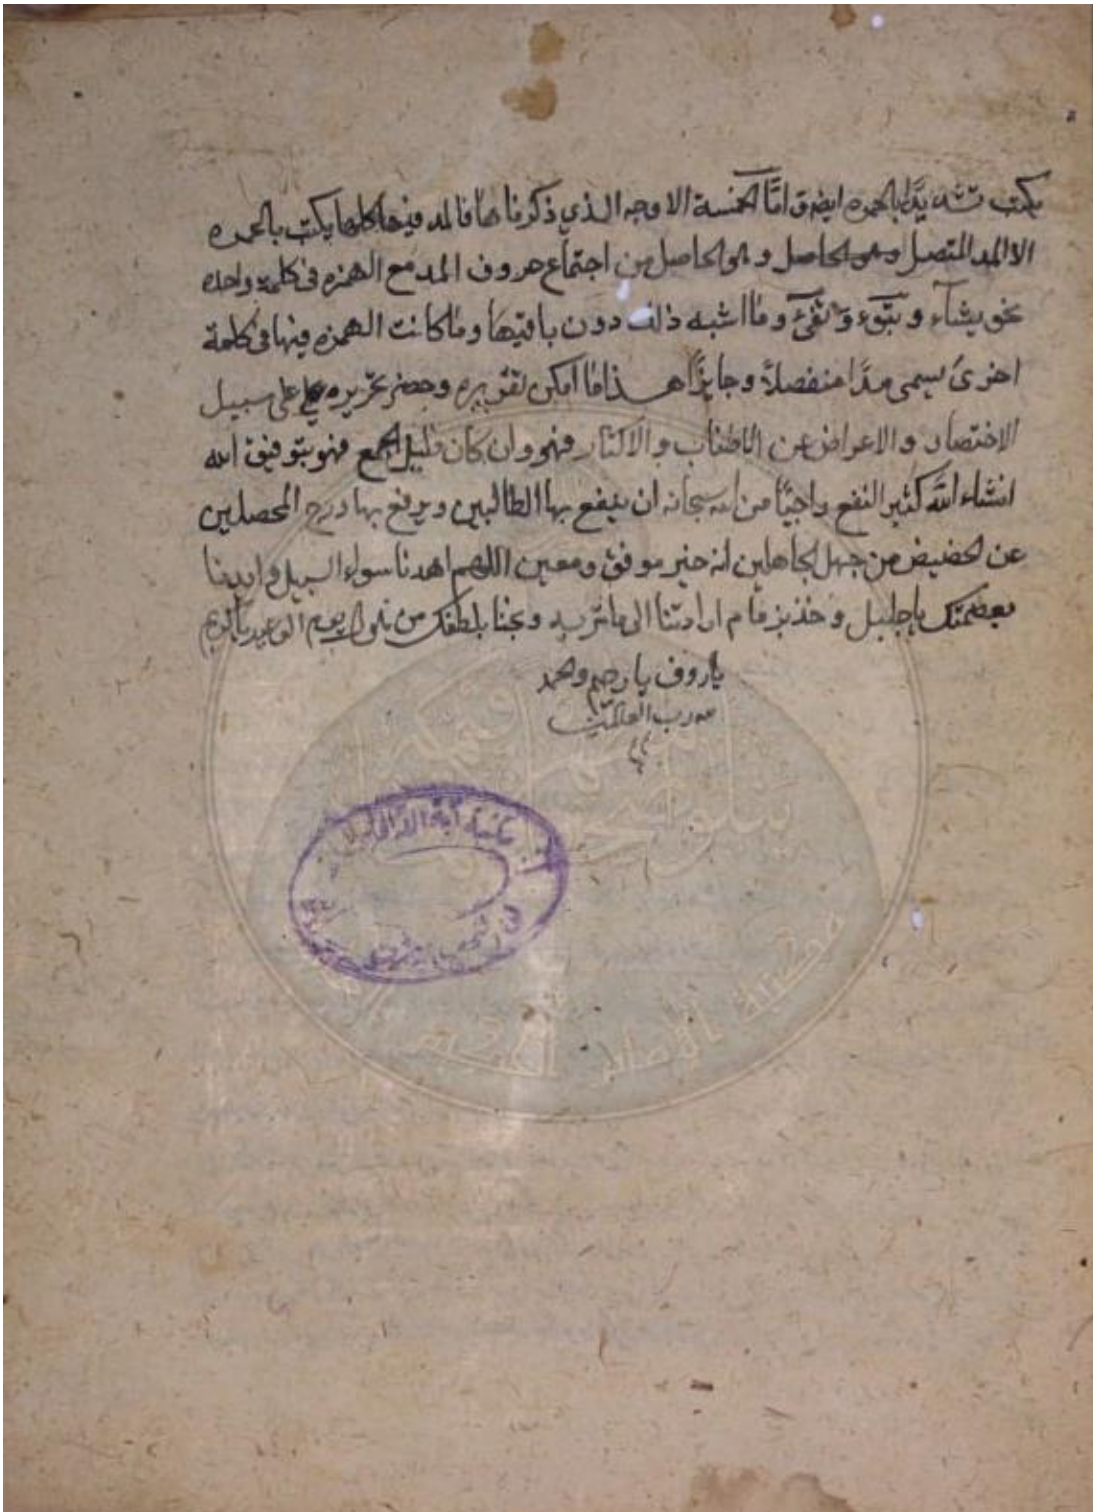 يكتب تشديدًا بالحمره ايضو امّا الخمسة الاوجه الذي ذكرناها فالمد فيها كلها يكتب بالحمره
الا المد المتصل وهى الحاصل وهى الحاصل من اجتماع حروف المد مع الهمزه فى كلمة واحده
نحو يشآء و تبوٓء و تفىٓء وما اشبه ذلك دون باقيها وما كانت الهمزه فيها فى كلمة
اخرىٰ يسمى مدًا منفصلاً وجايزًا هذا ما امكن تقريره وحضر تحريره على سبيل
الاختصار والاعراض عن الاطناب والاكثار فهو وان كان قليل الجمع فهو بتوفيق الله
انشاء الله كثير النفع راجيًا من الله سبحانه ان ينفع بها الطالبين ويرفع بها درج المحصلين
عن الحضيض من جهل الجاهلين انه خير موفق ومعين اللهم اهدنا سواء السبيل وايدنا
بعصمتك يا جليل وخذ بزمام ارادتنا الى ما تريد ونجنا بلطفك من يوم الوعيد يا كريم
يا روف يا رحيم والحمد
لله رب العالمين
مكتبة آية الله